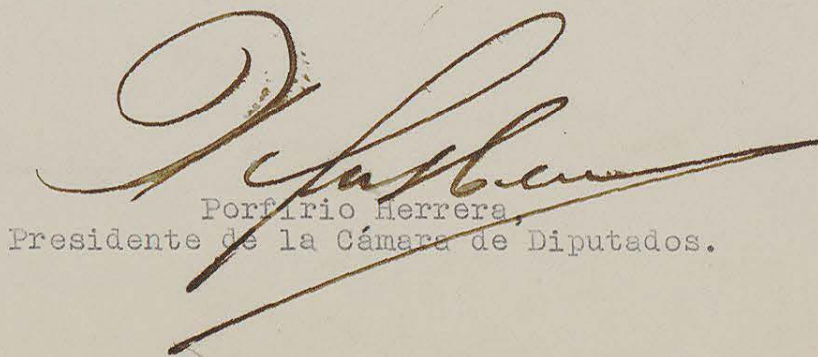 Porfirio Herrera,
Presidente de la Cámara de Diputados.